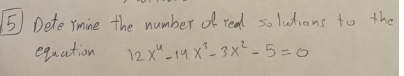 5 Determine the number of real solutions to the
equation 12x⁴-14x³-3x²-5=0